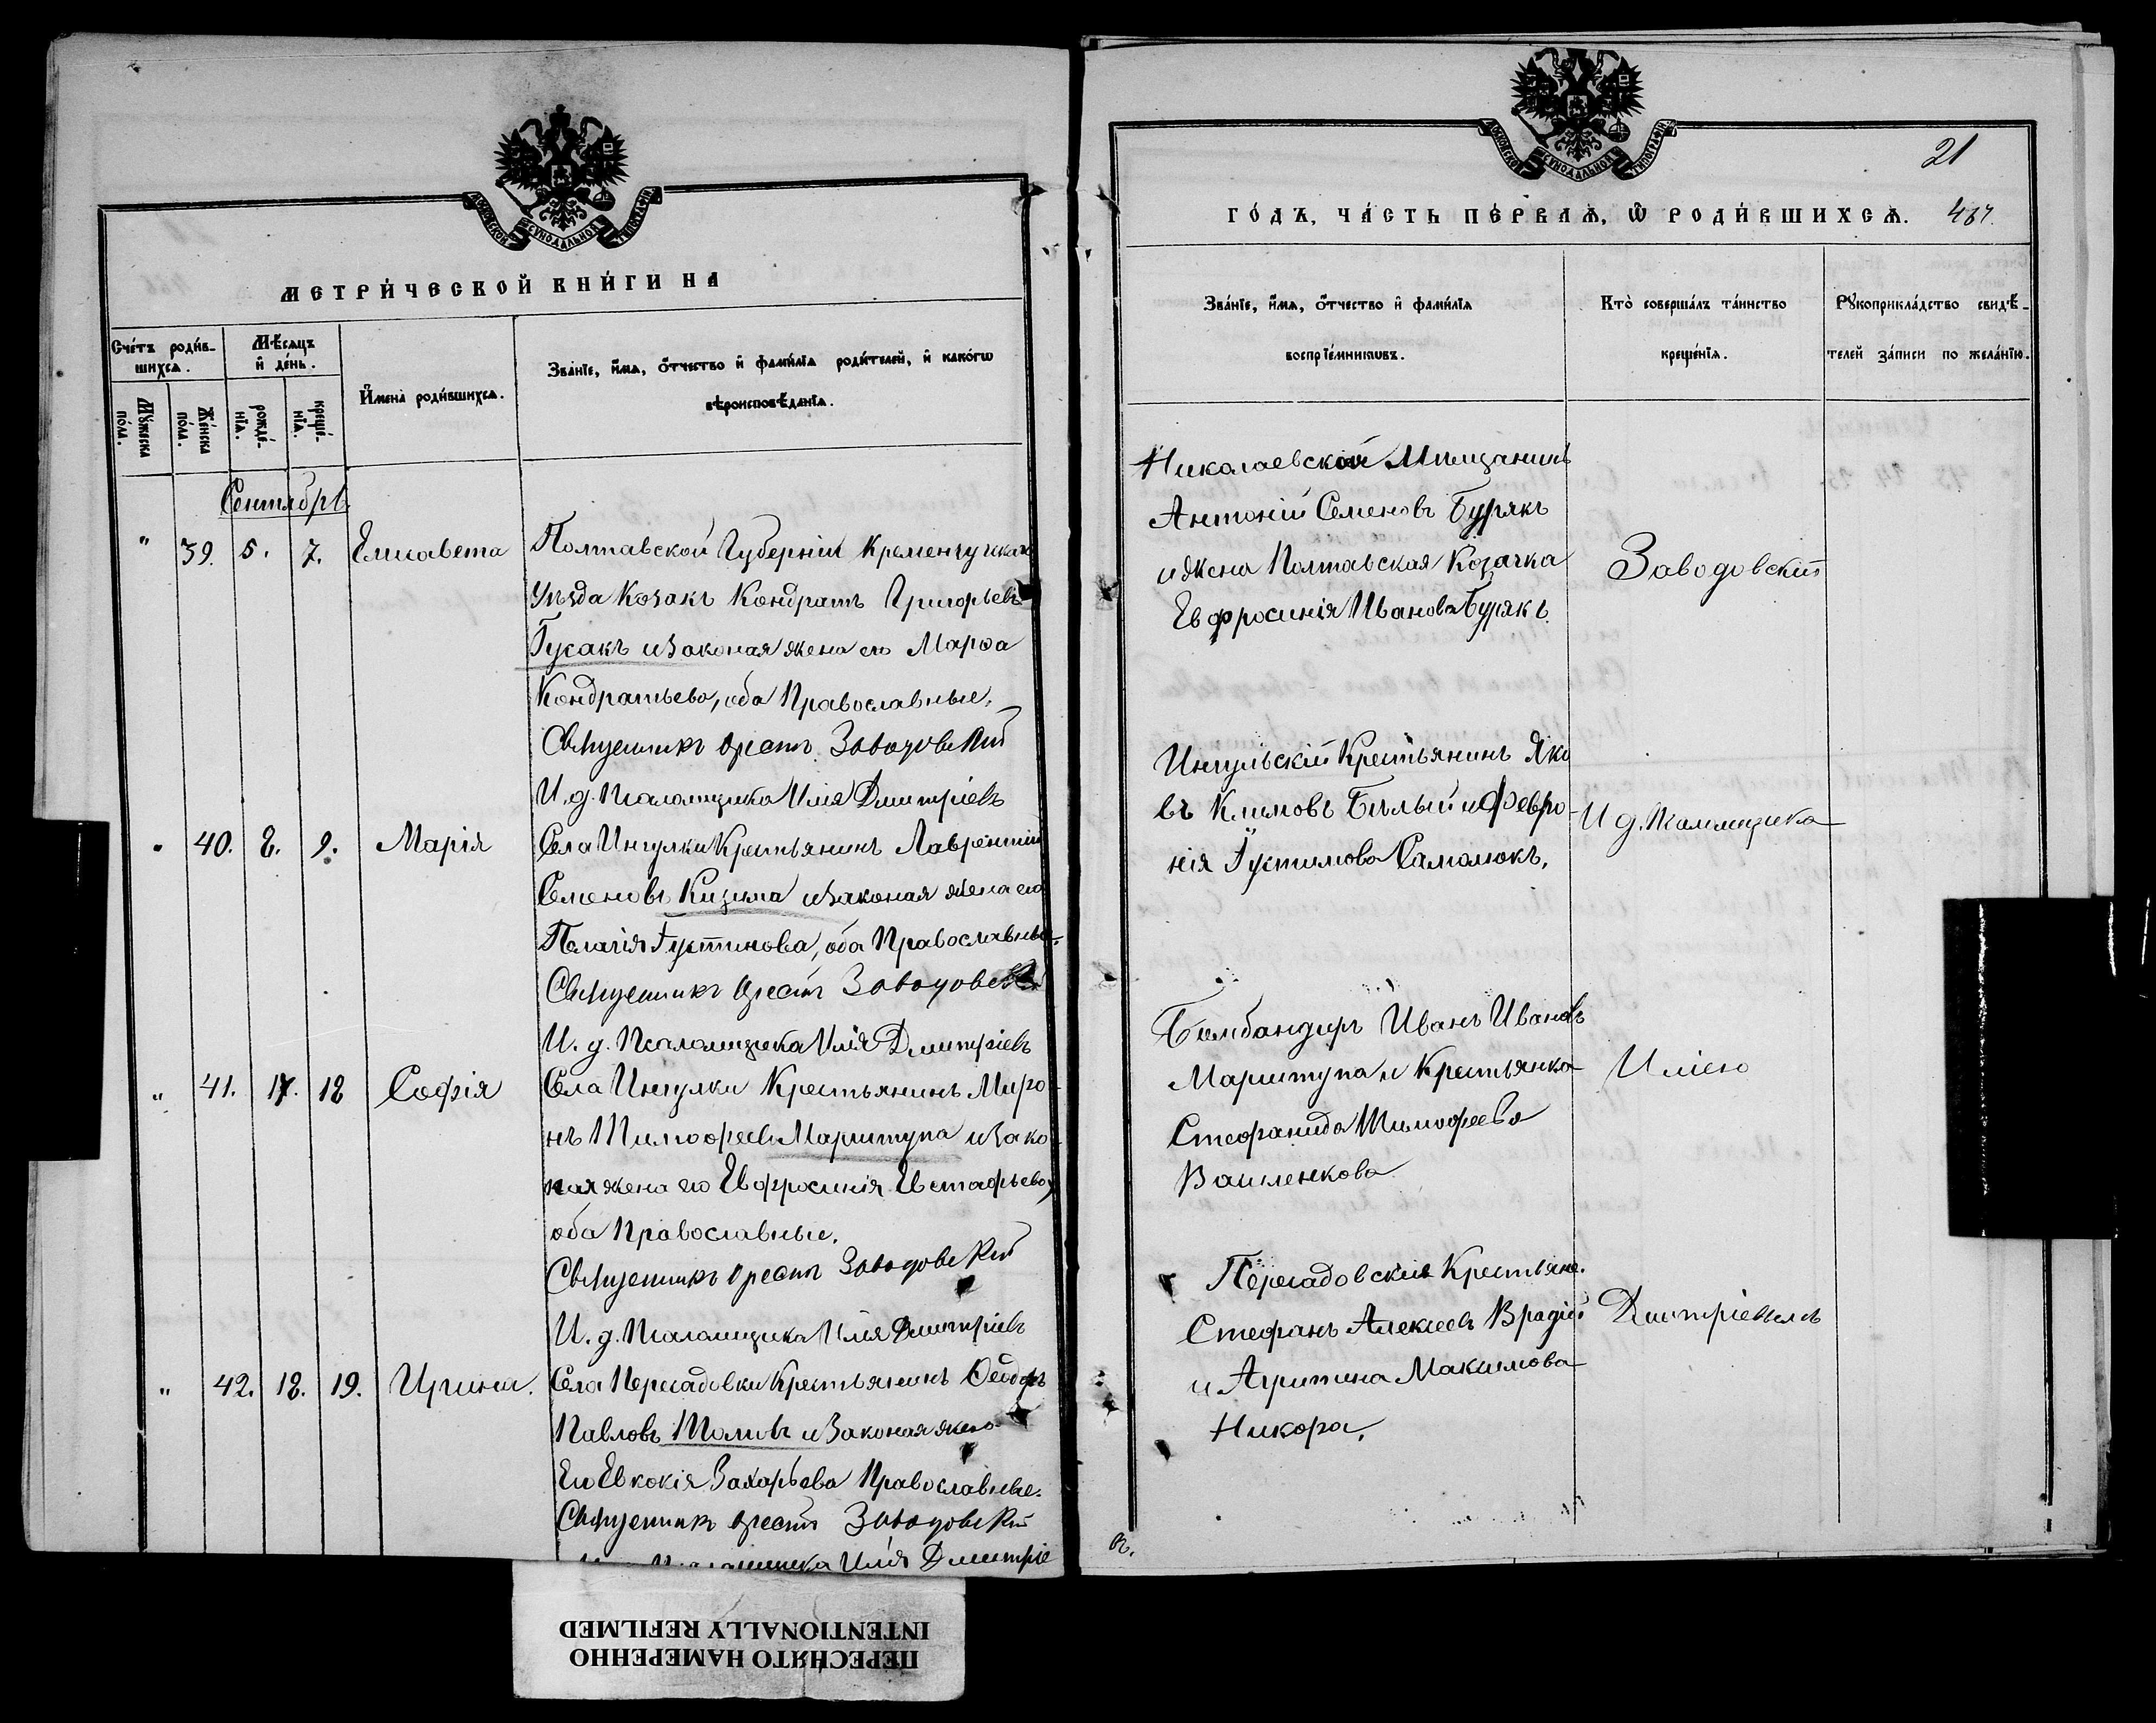 МОСКОВСКОЙ СѴНОДАЛЬНОЙ ТИПОГРАФІИ
МЕТРИ́ЧЕСКОЙ КНИ́ГИ НА
Сче́тъ роди́в-
шихсѧ.
Мѣ́сѧцъ
и҆ де́нь.
Мꙋ́жеска
по́ла.
Же́нска
по́ла.
рожде́-
нїѧ.
креще́-
нїѧ.
И҆мена̀ роди́вшихсѧ.
Зва́нїе, и҆́мѧ, ѻ҆́тчество и҆ фами́лїѧ роди́телей, и҆ како́гѡ
вѣроисповѣ́данїѧ.
Сентябрь.
" 39. 5. 7. Елисавета
Полтавской Губерніи Кременчугскаго
Уѣзда Козакъ Кондратъ Григорьевъ
Гусакъ и законая жена его Марѳа
Кондратьева, оба Православные.
Священникъ Орестъ Заводовскій
И. д. Псаломщика Илія Дмитріевъ
" 40. 8. 9. Марія
Села Ингулки Крестьянинъ Лаврентій
Семеновъ Кизима и законая жена его
Пелагія Густинова, оба Православные.
Священникъ Орестъ Заводовскій
И. д. Псаломщика Илія Дмитріевъ
" 41. 17. 18 Софія
Села Ингулки Крестьянинъ Миро-
нъ Тимофеевъ Маритупа и зако-
ная жена его Евфросинія Евстафьева,
оба Православные.
Священникъ Орестъ Заводовскій
И. д. Псаломщика Илія Дмитріевъ
" 42. 18. 19. Ирина.
Села Пересадовки Крестьянинъ Ѳеодоръ
Павловъ Талить и Законая жена
Его Евкокія Захарьева Православные.
Священникъ Орестъ Заводовскій
Псаломщика Илія Дмитріе
21
МОСКОВСКОЙ СѴНОДАЛЬНОЙ ТИПОГРАФІИ
ГО́ДЪ, ЧА́СТЬ ПЕ́РВАѦ, Ѡ҆ РОДИ́ВШИХСѦ. 467.
Зва́нїе, и҆́мѧ, ѻ҆́тчество и҆ фами́лїѧ
воспрїе́мникѡвъ.
Кто̀ соверша́лъ та́инство
креще́нїѧ.
Рꙋкоприкла́дство свидѣ́-
телей за́писи по жела́нїю.
Николаевской Мѣщанинъ
Антоній Семеновъ Бурякъ
и жена Полтавская Козачка
Евфросинія Иванова Бурякъ.
Заводовскій
Ингульскій Крестьянинъ Яко
въ Климовъ Бѣлый и Февро-
нія Густимова Самолюкъ.
И д. Псаломщика
Бомбандиръ Иванъ Ивановъ
Мариtупа и Крестьянка
Стефанида Тимофеева
Василенкова
Иліею
Пересадовскіе Крестьяне.
Стефанъ Алексеевъ Врадій
и Агрипина Максимова
Никора.
Дмитріевымъ
ПЕРЕСНЯТО НАМЕРЕННО
INTENTIONALLY REFILMED